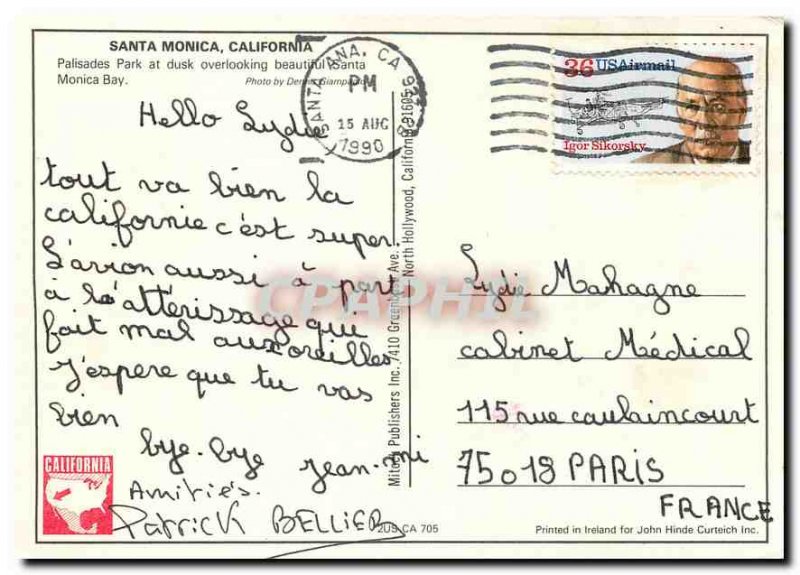 SANTA MONICA, CALIFORNIA
Palisades Park at dusk overlooking beautiful Santa
Monica Bay.
Photo by Dennis Giampaolo
SANTA ANA, CA
PM
15 AUG
1990
36 USAirmail
Igor Sikorsky
Hello Lydie
tout va bien la
californie c'est super.
L'avion aussi à part
à l'attérissage qui
fait mal aux oreilles
J'espere que tu vas
bien
bye-bye jean-mi
Amitiés.
Patrick BELLIER
Lydie Mahagne
cabinet Médical
115 rue caulaincourt
75018 PARIS
FRANCE
Publishers Inc., 7410 Greenbush Ave.,
North Hollywood, California 91605
CPAPHIL
CALIFORNIA
2US CA 705
Printed in Ireland for John Hinde Curteich Inc.